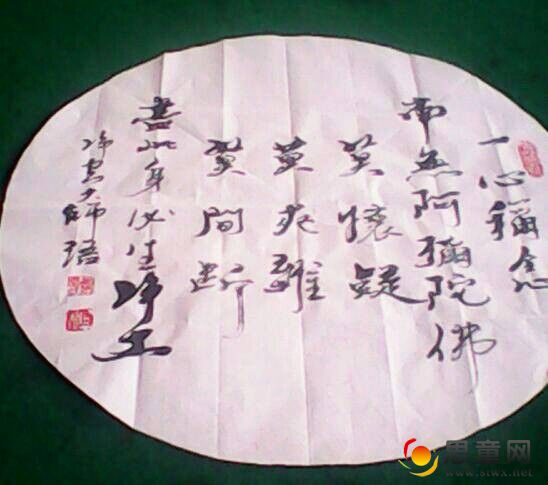 一心稱念
南無阿彌陀佛
莫懷疑
莫夾雜
莫間斷
盡此身必生净土
净空大師語
童网
www.stwx.net